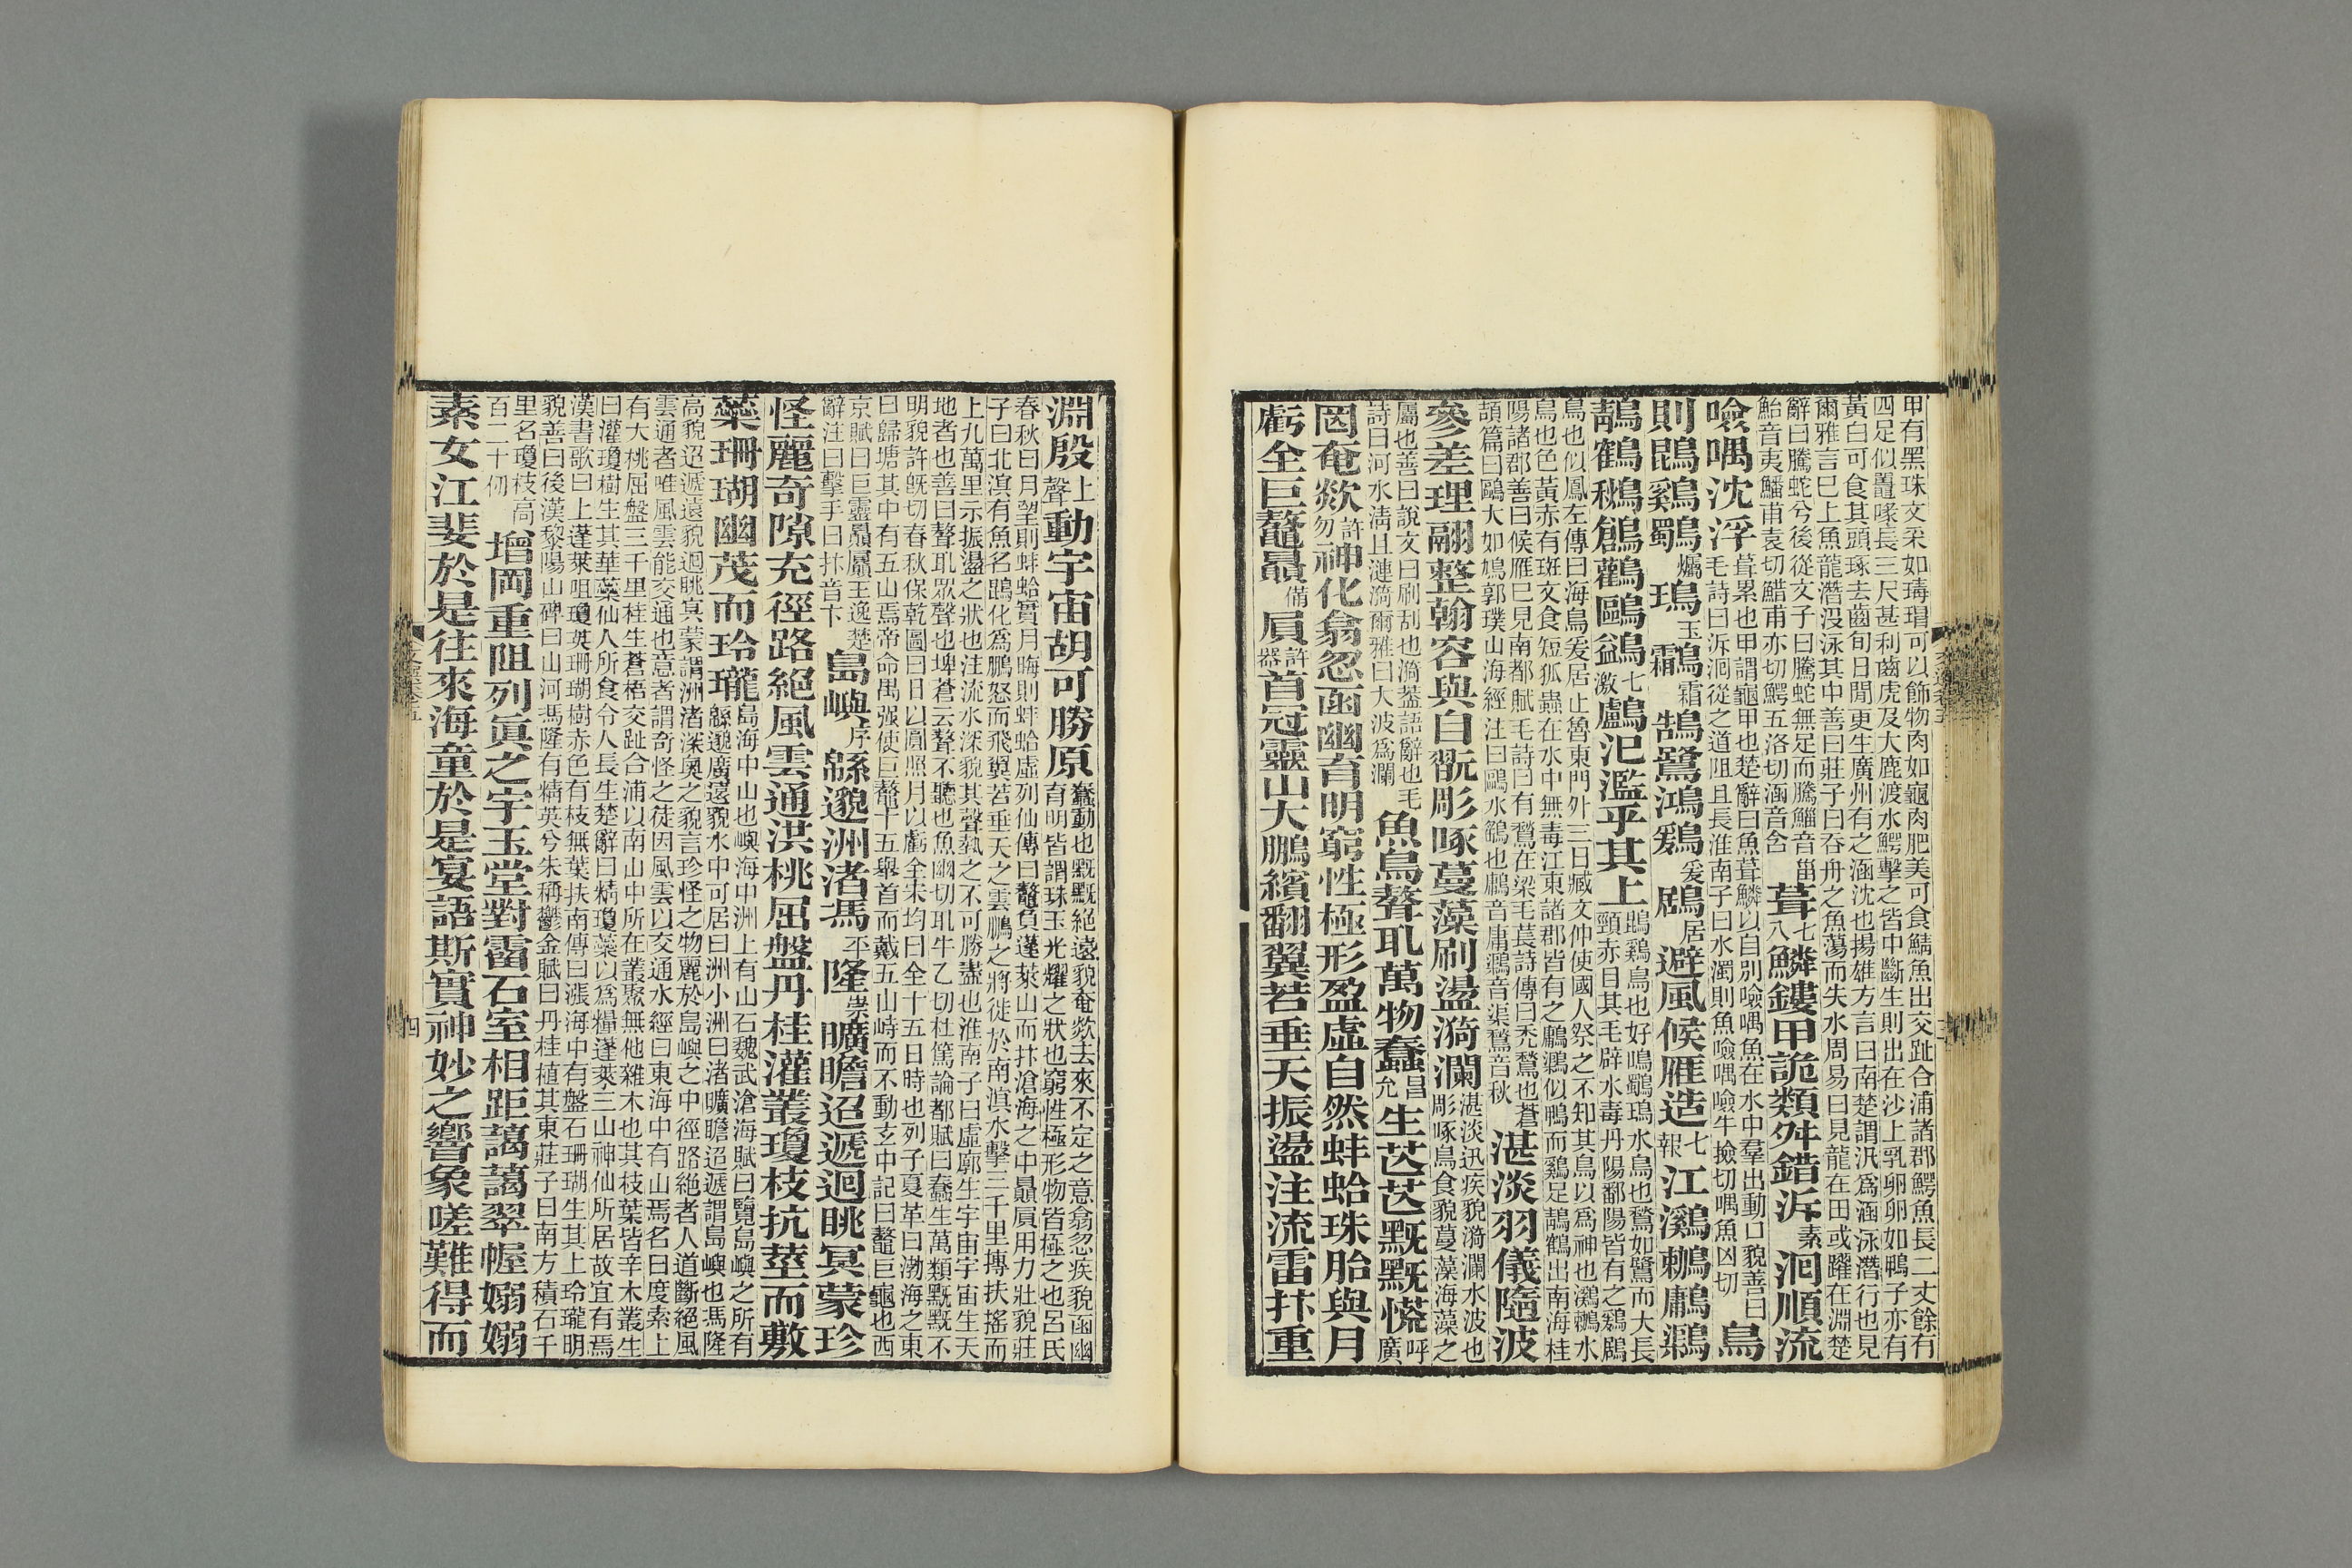 甲有黑珠文采如瑇瑁可以飾物肉如龜肉肥美可食鯖魚出交趾合浦諸郡鰐魚長二丈餘有
四足似鼉喙長三尺甚利齒虎及大鹿渡水鰐擊之皆中斷生則出在沙上乳卵卵如鴨子亦有
黃白可食其頭琢去齒旬日間更生廣州有之涵沈也揚雄方言曰南楚謂汎爲涵泳潛行也見
爾雅言已上魚龍潛沒泳其中善曰莊子曰吞舟之魚蕩而失水周易曰見龍在田或躍在淵楚
辭曰騰蛇兮後從文子曰騰蛇無足而騰鯔音甾鮐音夷鱕甫袁切鯌甫亦切鰐五洛切涵音含葺七八鱗鏤甲詭類舛錯泝素洄順流
噞喁沈浮葺累也甲謂龜甲也楚辭曰魚葺鱗以自別噞喁魚在水中羣出動口貌善曰毛詩曰泝洄從之道阻且長淮南子曰水濁則魚噞喁噞牛撿切喁魚凶切鳥
則鵾鷄鸀爥鳿玉鸘霜鵠鷺鴻鶢爰鶋居避風候雁造七報江鸂鶒鷛𪆫
鶄鶴鶖鶬鸛鷗鷁七激鸕氾濫乎其上鵾鷄鳥也好鳴鸀鳿水鳥也鶖如鷺而大長頸赤目其毛辟水毒丹陽鄱陽皆有之鶢鶋
鳥也似鳳左傳曰海鳥爰居止魯東門外三日臧文仲使國人祭之不知其鳥以爲神也鸂鶒水
鳥也色黃赤有斑文食短狐蟲在水中無毒江東諸郡皆有之鷛𪆫似鴨而鷄足鶄鶴出南海桂
陽諸郡善曰候雁已見南都賦毛詩曰有鶖在梁毛萇詩傳曰禿鶖也蒼頡篇曰鷗大如鳩郭璞山海經注曰鷗水鴞也鷛音庸𪆫音渠鶖音秋湛淡羽儀隨波
參差理翮整翰容與自翫彫啄蔓藻刷盪漪瀾湛淡迅疾貌漪瀾水波也彫啄鳥食貌蔓藻海藻之
屬也善曰說文曰刷刮也漪蓋語辭也毛詩曰河水淸且漣漪爾雅曰大波爲瀾魚鳥聱耴萬物蠢昌允生芒芒黖黖慌呼廣
罔奄欻許勿神化翕忽函幽育明窮性極形盈虛自然蚌蛤珠胎與月
虧全巨鼇贔備屓許器首冠靈山大鵬繽翻翼若垂天振盪注流雷抃重
淵殷上聲動宇宙胡可勝原蠢動也黖黖絕遠貌奄欻去來不定之意翕忽疾貌函幽育明皆謂珠玉光耀之狀也窮性極形物皆極之也呂氏
春秋曰月望則蚌蛤實月晦則蚌蛤虛列仙傳曰鼇負蓬萊山而抃滄海之中贔屓用力壯貌莊
子曰北溟有魚名鵾化爲鵬怒而飛翼若垂天之雲鵬之將徙於南溟水擊三千里摶扶搖而
上九萬里示振盪之狀也注流水深貌其聲勢之不可勝盡也淮南子曰虛廓生宇宙宇宙生天
地者也善曰聱耴眾聲也埤蒼云聱不聽也魚幽切耴牛乙切杜篤論都賦曰蠢生萬類黖黖不
明貌許旣切春秋保乾圖曰日以圓照月以虧全宋均曰全十五日時也列子夏革曰渤海之東
曰歸塘其中有五山焉帝命禺强使巨鼇十五舉首而戴五山峙而不動玄中記曰鼇巨龜也西
京賦曰巨靈贔屭王逸楚辭注曰擊手曰抃音卞島嶼序緜邈洲渚馮平隆崇曠瞻迢遞迥眺冥蒙珍
怪麗奇隙充徑路絕風雲通洪桃屈盤丹桂灌叢瓊枝抗莖而敷
蘂珊瑚幽茂而玲瓏島海中山也嶼海中洲上有山石魏武滄海賦曰覽島嶼之所有緜邈廣遠貌水中可居曰洲小洲曰渚曠瞻迢遞謂島嶼也馮隆
高貌迢遞遠貌迥眺冥蒙謂洲渚深奧之貌言珍怪之物麗於島嶼之中徑路絕者人道斷絕風
雲通者唯風雲能交通也意者謂奇怪之徒因風雲以交通水經曰東海中有山焉名曰度索上
有大桃屈盤三千里桂生蒼梧交趾合浦以南山中所在叢聚無他雜木也其枝葉皆辛木叢生
曰灌瓊樹生其華蘂仙人所食令人長生楚辭曰精瓊蘂以爲糧蓬萊三山神仙所居故宜有焉
漢書歌曰上蓬萊咀瓊英珊瑚樹赤色有枝無葉扶南傳曰漲海中有盤石珊瑚生其上玲瓏明
貌善曰後漢黎陽山碑曰山河馮隆有精英兮朱稱鬱金賦曰丹桂植其東莊子曰南方積石千
里名瓊枝高百二十仞增岡重阻列眞之宇玉堂對霤石室相距藹藹翠幄嫋嫋
素女江斐於是往來海童於是宴語斯實神妙之響象嗟難得而
四